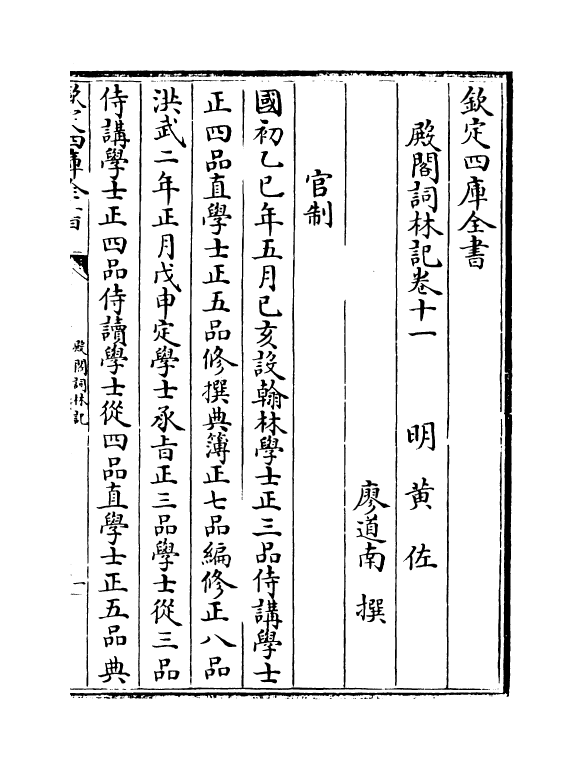 欽定四庫全書
殿閣詞林記卷十一
明 黄佐
廖道南 撰
官制
國初乙巳年五月己亥設翰林學士正三品侍講學士
正四品直學士正五品修撰典簿正七品編修正八品
洪武二年正月戊申定學士承㫖正三品學士從三品
侍講學士正四品侍讀學士從四品直學士正五品典
欽定四庫全書
殿閣詞林記
一